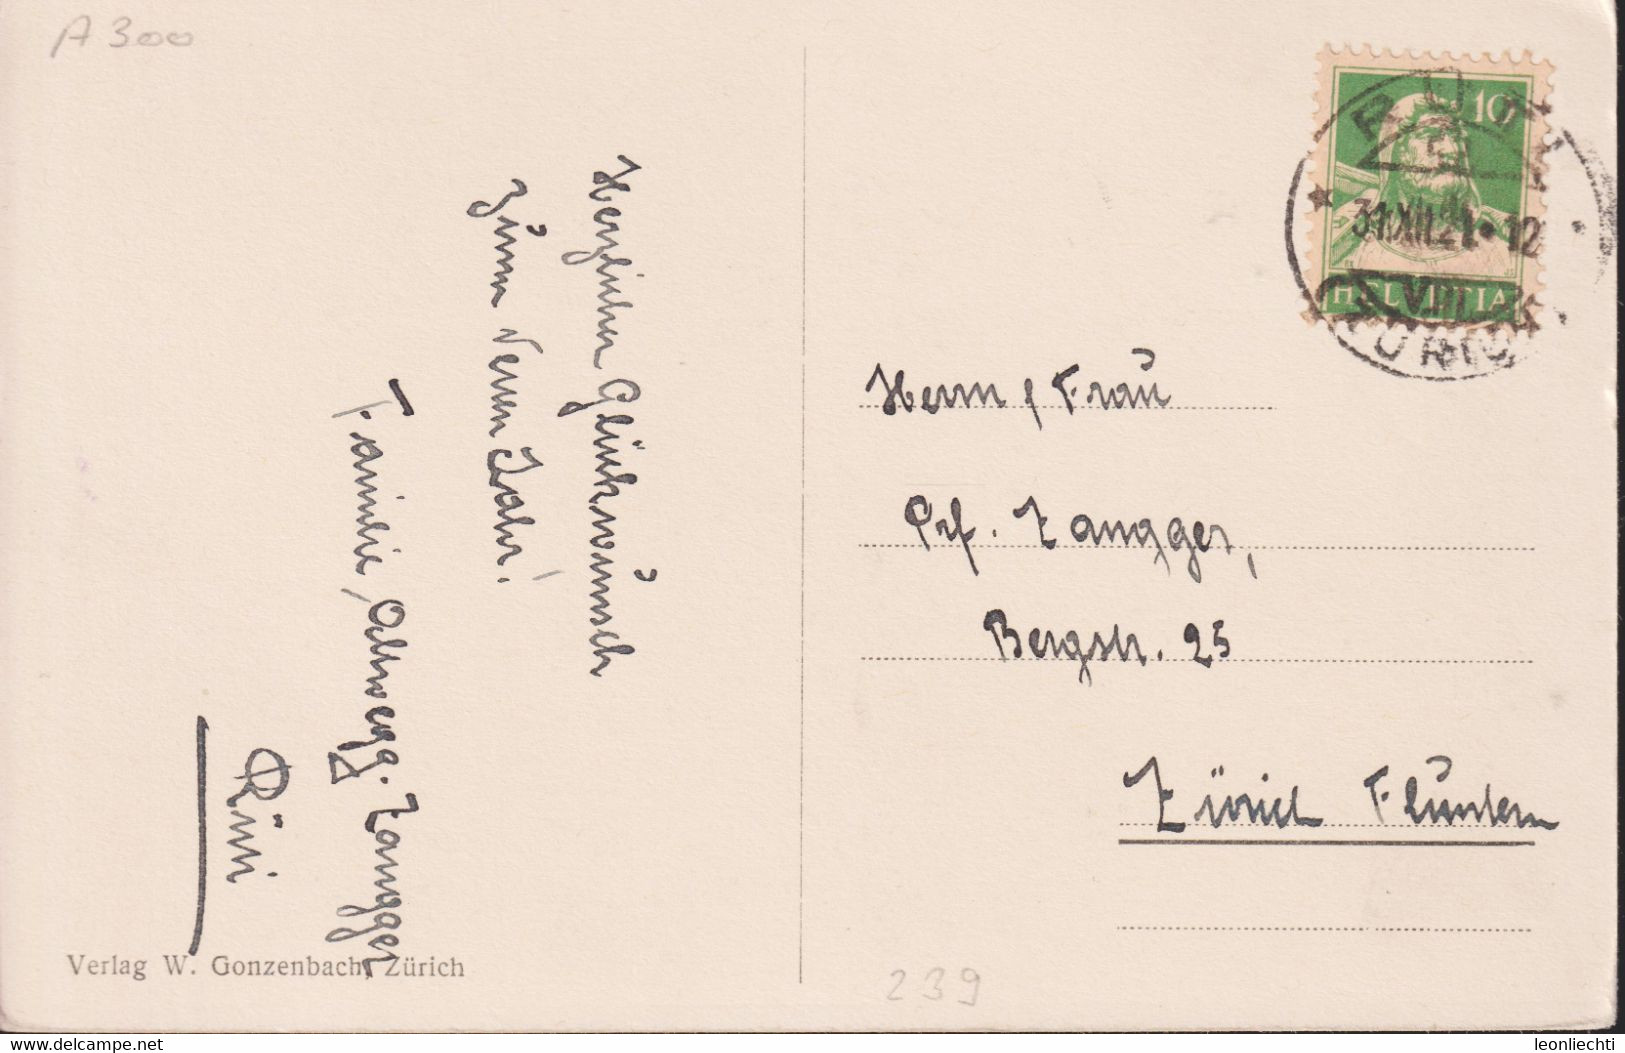 A 300
Herzlichen Glückwunsch
zum Neuen Jahr!
Familie Altwegg. Zangger
Rüti
Verlag W. Gonzenbach, Zürich
10
HELVETIA
RÜTI
31.XII.21.12
VIII
(ZÜRICH)
Herrn / Frau
Prf. Zangger,
Bergstr. 25
Zürich Fluntern
239
www.delcampe.net
leonliechti